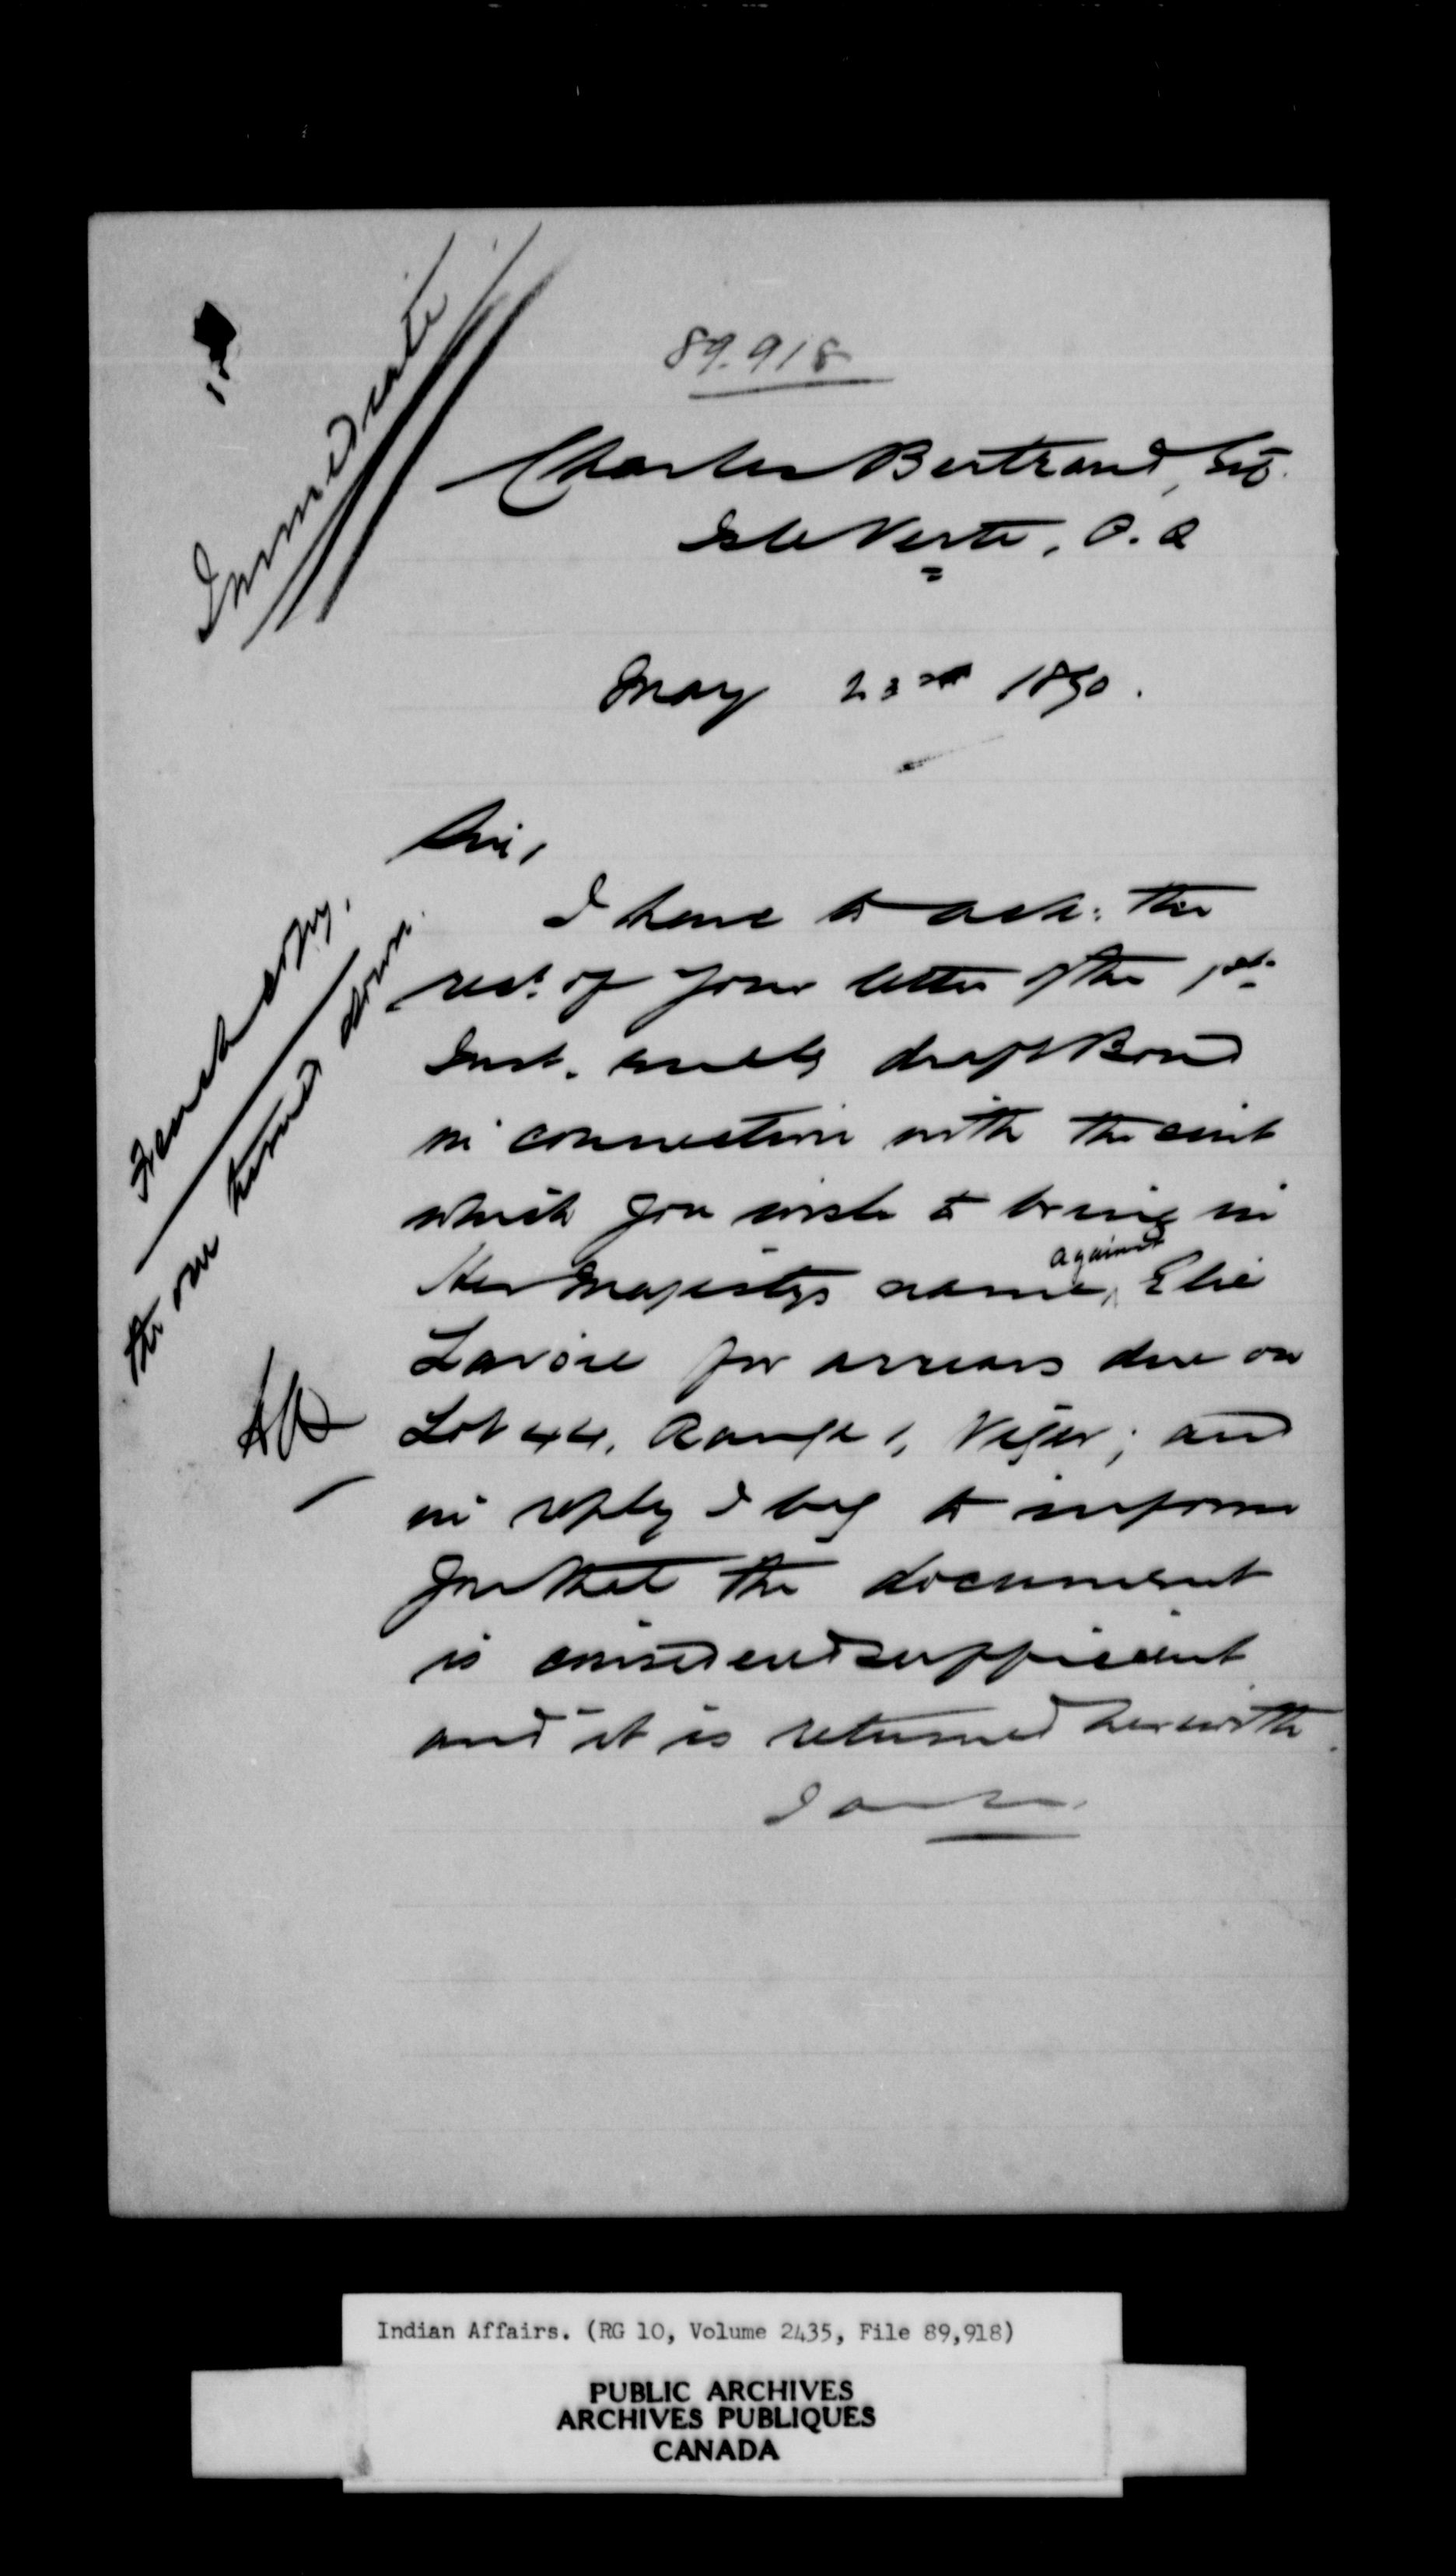 Immediate
89.918
Charles Bertrand, Esq.
Isle Verte, P.Q
May 23rd 1890.
Sir,
I have to ack: the
rect. of your letter of the 1st
Inst. encls draft Bond
in connection with the suit
which you wish to bring in
Her Majestys name, against Elie
Lavoie for arrears due on
Lot 44, Range 1, Viger; and
in reply I beg to inform
you that the document
is considered sufficient
and it is returned herewith.
French copy.
the one turned down.
Indian Affairs. (RG 10, Volume 2435, File 89,918)
PUBLIC ARCHIVES
ARCHIVES PUBLIQUES
CANADA